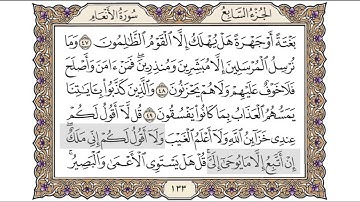 الجزء السابع
سورة الأنعام
بَغْتَةً أَوْ جَهْرَةً هَلْ يُهْلَكُ إِلَّا الْقَوْمُ الظَّالِمُونَ ٤٧ وَمَا
نُرْسِلُ الْمُرْسَلِينَ إِلَّا مُبَشِّرِينَ وَمُنذِرِينَ فَمَنْ ءَامَنَ وَأَصْلَحَ
فَلَا خَوْفٌ عَلَيْهِمْ وَلَا هُمْ يَحْزَنُونَ ٤٨ وَالَّذِينَ كَذَّبُوا بِـَٔايَاتِنَا
يَمَسُّهُمُ الْعَذَابُ بِمَا كَانُوا يَفْسُقُونَ ٤٩ قُل لَّا أَقُولُ لَكُمْ
عِندِي خَزَائِنُ اللَّهِ وَلَا أَعْلَمُ الْغَيْبَ وَلَا أَقُولُ لَكُمْ إِنِّي مَلَكٌ
إِنْ أَتَّبِعُ إِلَّا مَا يُوحَىٰ إِلَيَّ قُلْ هَلْ يَسْتَوِي الْأَعْمَىٰ وَالْبَصِيرُ
١٣٣